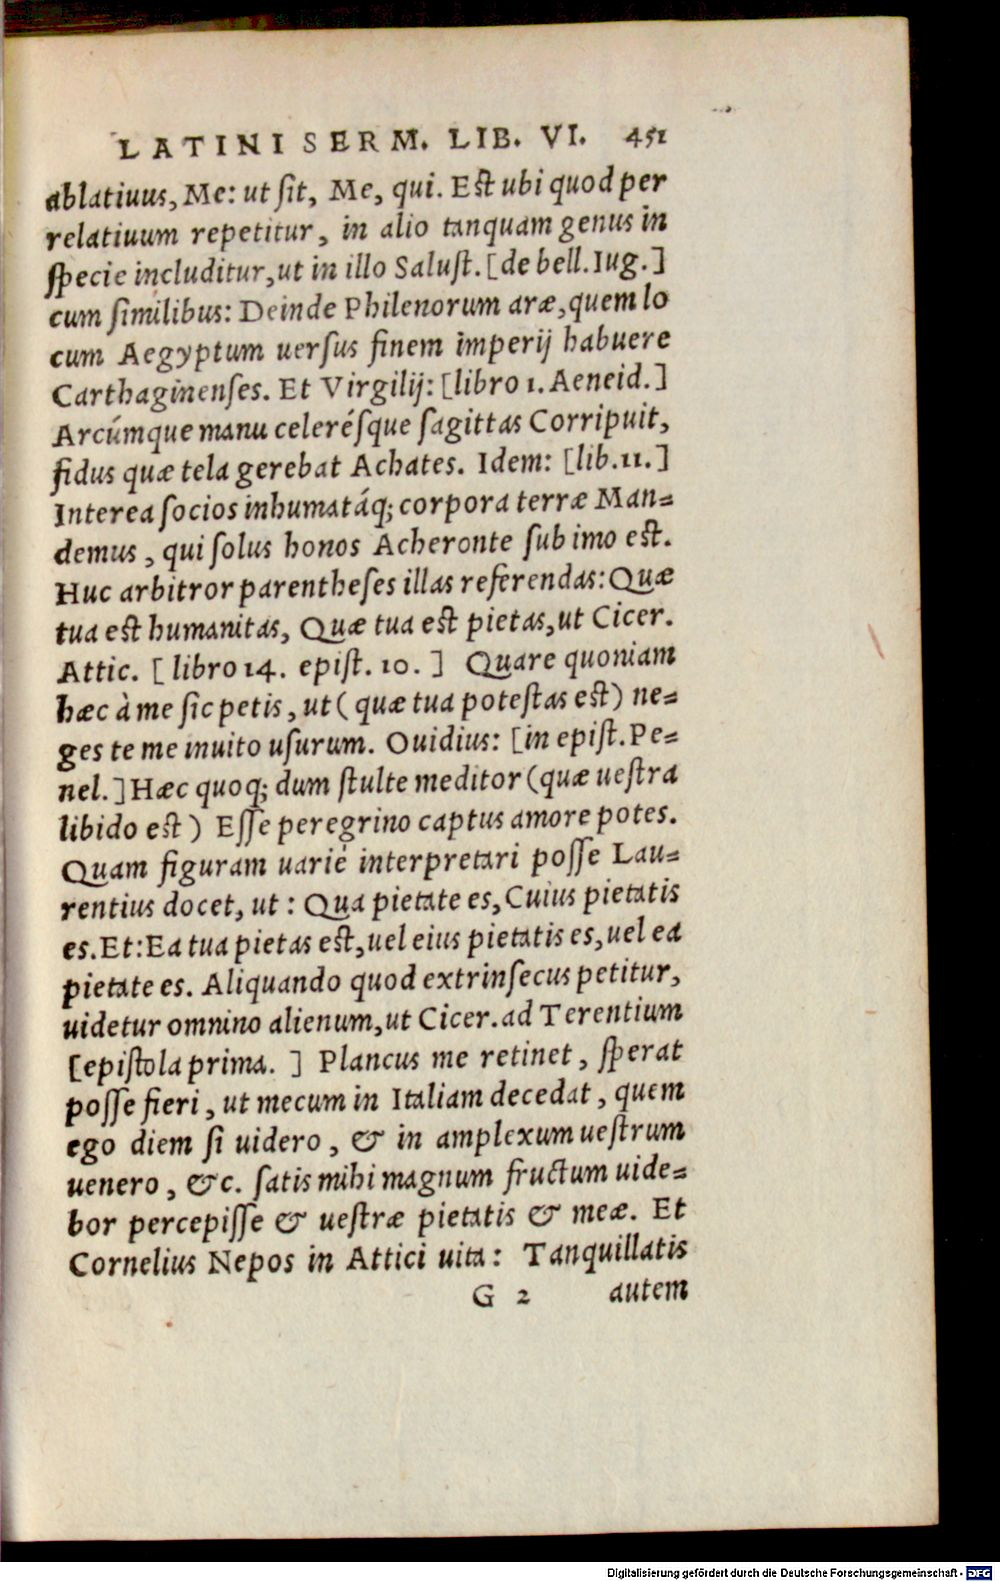 LATINI SERM. LIB. VI. 451
ablatiuus, Me: ut ſit, Me, qui. Eſt ubi quod per
relatiuum repetitur, in alio tanquam genus in
ſpecie includitur, ut in illo Saluſt. [de bell. Iug.]
cum ſimilibus: Deinde Philenorum aræ, quem lo
cum Aegyptum uerſus finem imperij habuere
Carthaginenſes. Et Virgilij: [libro 1. Aeneid.]
Arcúmque manu celeréſque ſagittas Corripuit,
fidus quæ tela gerebat Achates. Idem: [lib. 11.]
Interea ſocios inhumatáq; corpora terræ Man=
demus, qui ſolus honos Acheronte ſub imo eſt.
Huc arbitror parentheſes illas referendas: Quæ
tua eſt humanitas, Quæ tua eſt pietas, ut Cicer.
Attic. [libro 14. epiſt. 10.] Quare quoniam
hæc à me ſic petis, ut (quæ tua poteſtas eſt) ne=
ges te me inuito uſurum. Ouidius: [in epiſt. Pe=
nel.] Hæc quoq; dum ſtulte meditor (quæ ueſtra
libido eſt) Eſſe peregrino captus amore potes.
Quam figuram uariè interpretari poſſe Lau=
rentius docet, ut: Qua pietate es, Cuius pietatis
es. Et: Ea tua pietas eſt, uel eius pietatis es, uel ea
pietate es. Aliquando quod extrinſecus petitur,
uidetur omnino alienum, ut Cicer. ad Terentium
[epiſtola prima.] Plancus me retinet, ſperat
poſſe fieri, ut mecum in Italiam decedat, quem
ego diem ſi uidero, & in amplexum ueſtrum
uenero, &c. ſatis mihi magnum fructum uide=
bor percepiſſe & ueſtræ pietatis & meæ. Et
Cornelius Nepos in Attici uita: Tanquillatis
G 2 autem
Digitalisierung gefördert durch die Deutsche Forschungsgemeinschaft - DFG